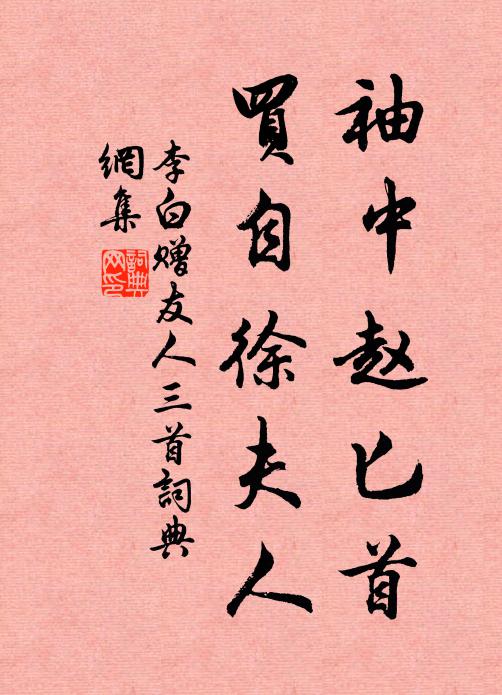 袖中赵匕首
買自徐夫人
李白赠友人三首詞典
網集
詞典
网印